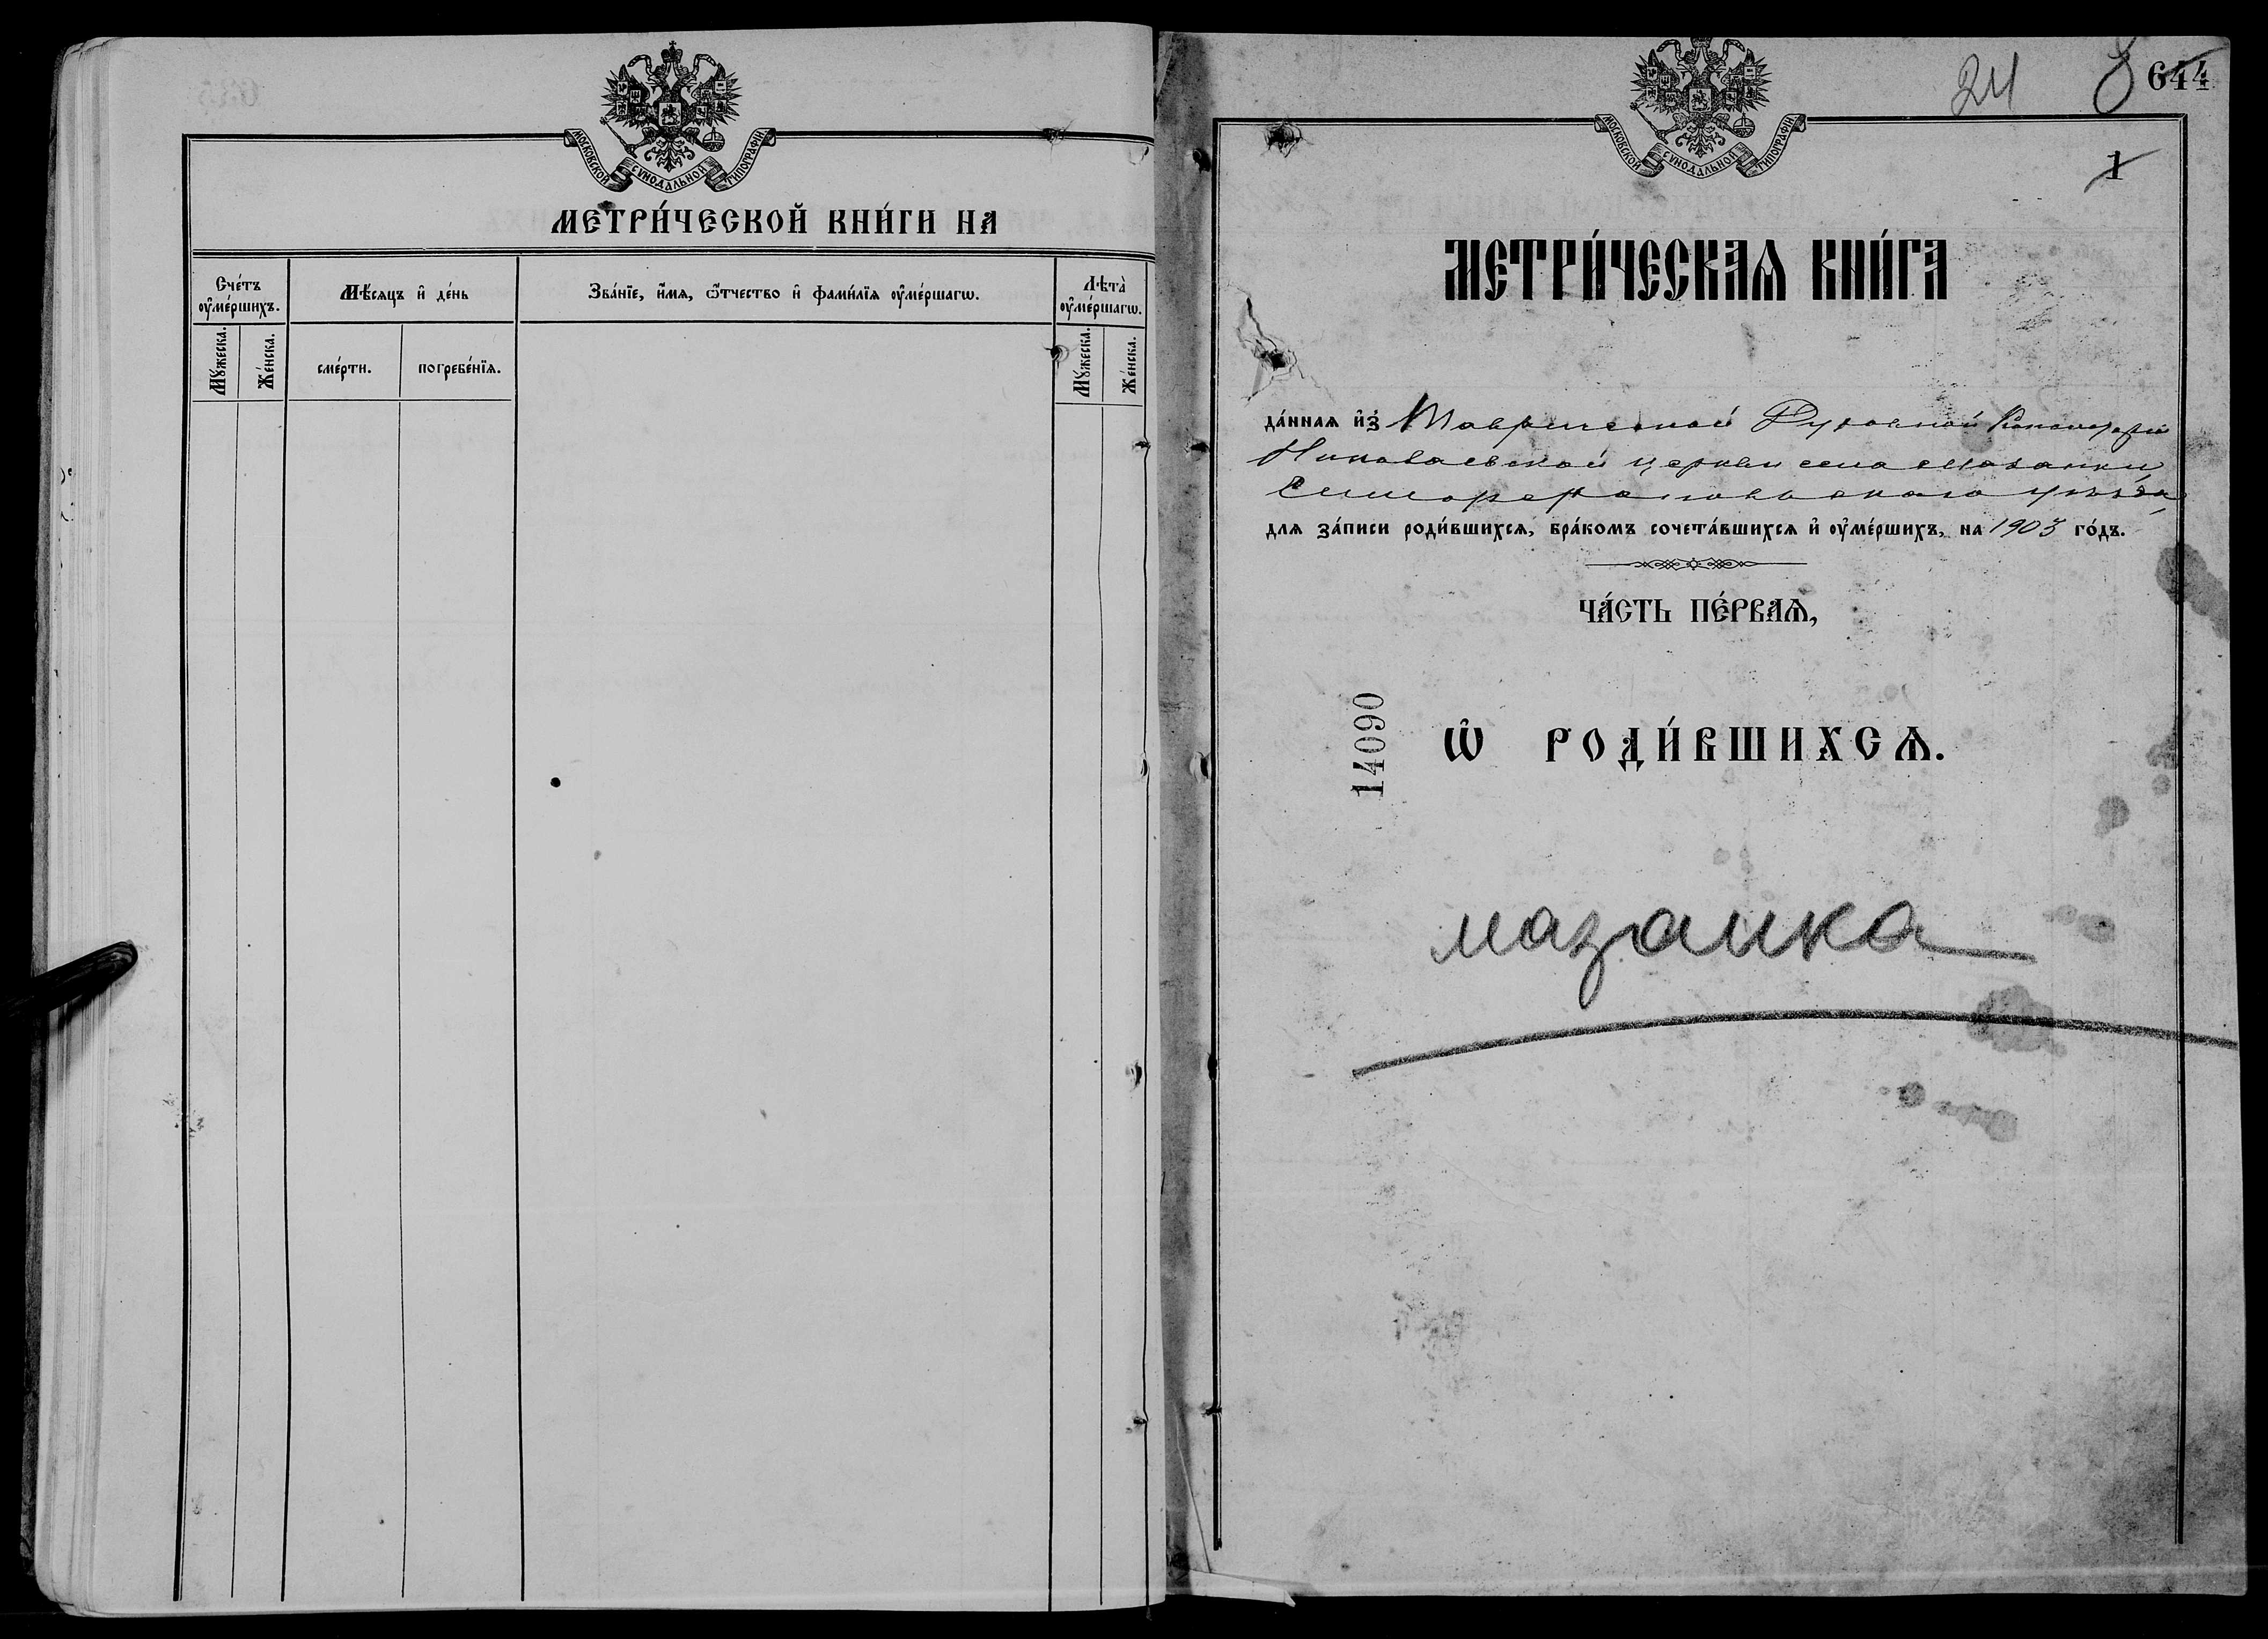 МОСКОВСКОЙ СѴНОДАЛЬНОЙ ТИПОГРАФІИ
МЕТРИ́ЧЕСКОЙ КНИ́ГИ НА
Сче́тъ ᲂу҆ме́ршихъ.
Мѣ́сяцъ и҆ де́нь
Зва́нїе, и҆́мя, ѻ҆́тчество и҆ фами́лїя ᲂу҆ме́ршагѡ.
Лѣта̀ ᲂу҆ме́ршагѡ.
Мꙋ́жеска.
Же́нска.
сме́рти.
погребе́нїѧ.
Мꙋ́жеска.
Же́нска.
24 644
МОСКОВСКОЙ СѴНОДАЛЬНОЙ ТИПОГРАФІИ
1
МЕТРИ́ЧЕСКАѦ КНИ́ГА
да́ннаѧ и҆з̾ Таврической Духовной Консисторіи
Николаевской церкви села Мазанки
Симферопольскаго уѣзда
для за́писи роди́вшихсѧ, бра́комъ сочета́вшихсѧ и҆ ᲂу҆ме́ршихъ, на 1903 го́дъ.
ЧА́СТЬ ПЕ́РВАѦ,
14090
Ѡ҆ РОДИ́ВШИХСѦ.
мазанка